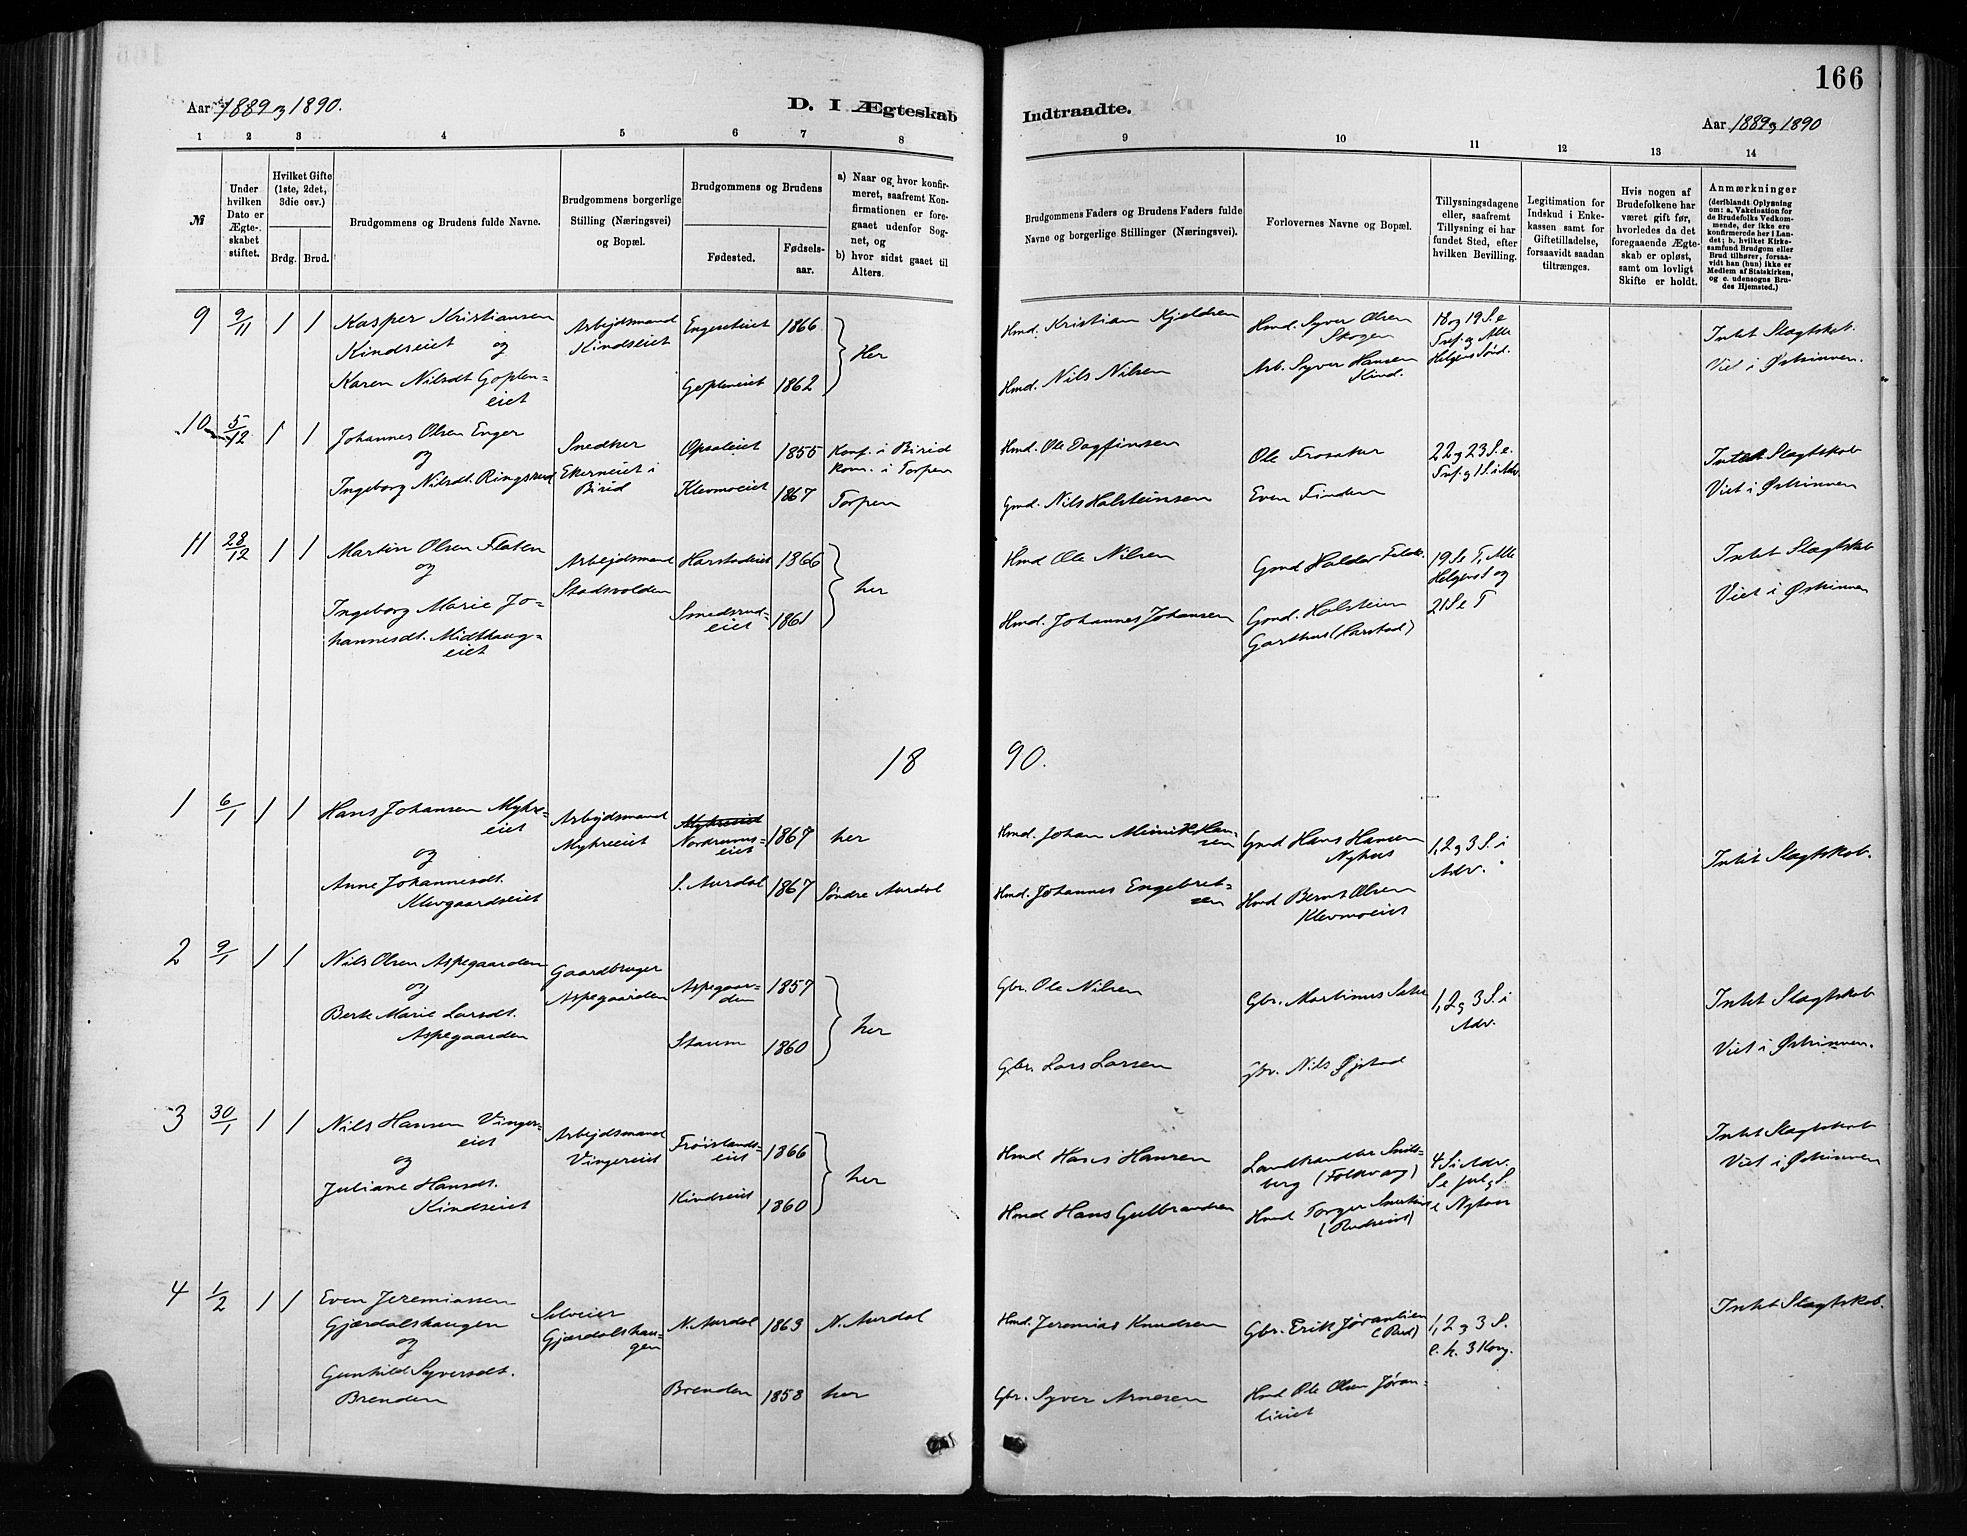 166
Aar 1889 og 1890.
D. I Ægteskab
Indtraadte.
Aar 1889 og 1890
1 2 3 4 5 6 7 8 9 10 11 12 13 14
№
Under hvilken Dato er Ægte-skabet stiftet.
Hvilket Gifte (1ste, 2det, 3die osv.)
Brdg. Brud.
Brudgommens og Brudens fulde Navne.
Brudgommens borgerlige Stilling (Næringsvei) og Bopæl.
Brudgommens og Brudens
Fødested.
Fødsels-aar.
a) Naar og hvor konfir-meret, saafremt Kon-firmationen er fore-gaaet udenfor Sog-net, og
b) hvor sidst gaaet til Alters.
Brudgommens Faders og Brudens Faders fulde Navne og borgerlige Stillinger (Næringsvei).
Forlovernes Navne og Bopæl.
Tillysningsdagene eller, saafremt Tillysning ei har fundet Sted, efter hvilken Bevilling.
Legitimation for Indskud i Enke-kassen samt for Giftetilladelse, forsaavidt saadan tiltrænges.
Hvis nogen af Brudefolkene har været gift før, hvorledes da det foregaaende Ægte-skab er opløst, samt om lovligt Skifte er holdt.
Anmærkninger (deriblandt Oplysning om: a. Vakcination for de Brudefolks Vedkom-mende, der ikke ere konfirmerede her i Lan-det; b. hvilket Kirke-samfund Brudgom eller Brud tilhører, forsaa-vidt han (hun) ikke er Medlem af Statskirken, og c. udensogns Bru-des Hjemsted.)
9 9/11 1 1 Kasper Kristiansen Kindseiet og Karen Nilsdt. Goplen-eiet
Arbejdsmand Kindseiet
Engeseteiet 1866
Gopleneiet 1862
Her
Hmd. Kristian Kjeldsen
Hmd. Nils Nilsen
Hmd. Syver Olsen Skogen
Arb. Syver Hansen Kind.
18 og 19 S. e Tref. og Alle Helgens Sønd.
Intet Slægtskab.
Viet i Østsinnen.
10 5/12 1 1 Johannes Olsen Enger og Ingeborg Nilsdt. Ringsrud
Snedker Ekerneiet i Birid
Opsaleiet 1855 Konf. i Birid kom. i Torpen
Klevmoeiet 1867 Torpen
Hmd. Ole Dagfinsen
Gmd. Nils Halsteinsen
Ole Frosaker
Even Finden
22 og 23 S. e. Tref. og 1 S. i Adv.
Intet Slægtskab
Viet i Østsinnen
11 28/12 1 1 Martin Olsen Flaten og Ingeborg Marie Jo-hannesdt. Midthaug-eiet
Arbejdsmand Stadsvolden
Harstadeiet 1866
Smedsrud-eiet 1861
her
Hmd Ole Nilsen
Hmd. Johannes Johansen
Gmd Halder
Gmd. Halstein Garthus (Harstad)
19 S e T, Alle Helgens S og 21 S e T
Intet Slægtskab
Viet i Østsinnen
18 90.
1 6/1 1 1 Hans Johansen Myhre-eiet og Anne Johannesdt. Klevgaardseiet
Arbejdsmand Myhreeiet
Myhreeiet Nordrums-eiet 1867 her
S. Aurdal 1867 Søndre Aurdal
Hmd. Johan Han-sen
Hmd. Johannes Engebret-sen
Gmd Hans Hansen Nyhus
Hmd Bernt Olsen Klevmoeiet
1, 2 og 3 S. i Adv.
Intet Slægtskab.
2 9/1 1 1 Nils Olsen Aspegaarden og Berte Marie Larsdt. Aspegaarden
Gaardbruger Aspegaarden
Aspegaar-den 1857
Staum 1860
her
Gbr. Ole Nilsen
Gbr. Lars Larsen
Gbr. Martinus
Gbr. Nils Øistad
1, 2 og 3 S. i Adv.
Intet Slægtskab
Viet i Østsinnen.
3 30/1 1 1 Nils Hansen Vinger-eiet og Juliane Hansdt. Kindseiet
Arbejdsmand Vingereiet
Frøislands-eiet 1866
Kindseiet 1860
her
Hmd Hans Hansen
Hmd Hans Gulbrandsen
Landhandler Smids-berg (Folkvang)
Hmd Torger (Rudseiet)
4 S i Adv. S e Jul og S. e Nytaar
Intet Slægtskab
Viet i Østsinnen
4 1/2 1 1 Even Jeremiassen Gjærdalshaugen og Gunhild Syversdt. Brenden
Selveier Gjærdalshau-gen
N. Aurdal 1863 N. Aurdal
Brenden 1858 her
Hmd. Jeremias Knudsen
Gbr. Syver Arnesen
Gbr. Erik Jøranlien (Rud)
Hmd Ole Olsen Jøran-lieiet
1, 2 og 3 S. e. h. 3 Kong.
Intet Slægtskab.